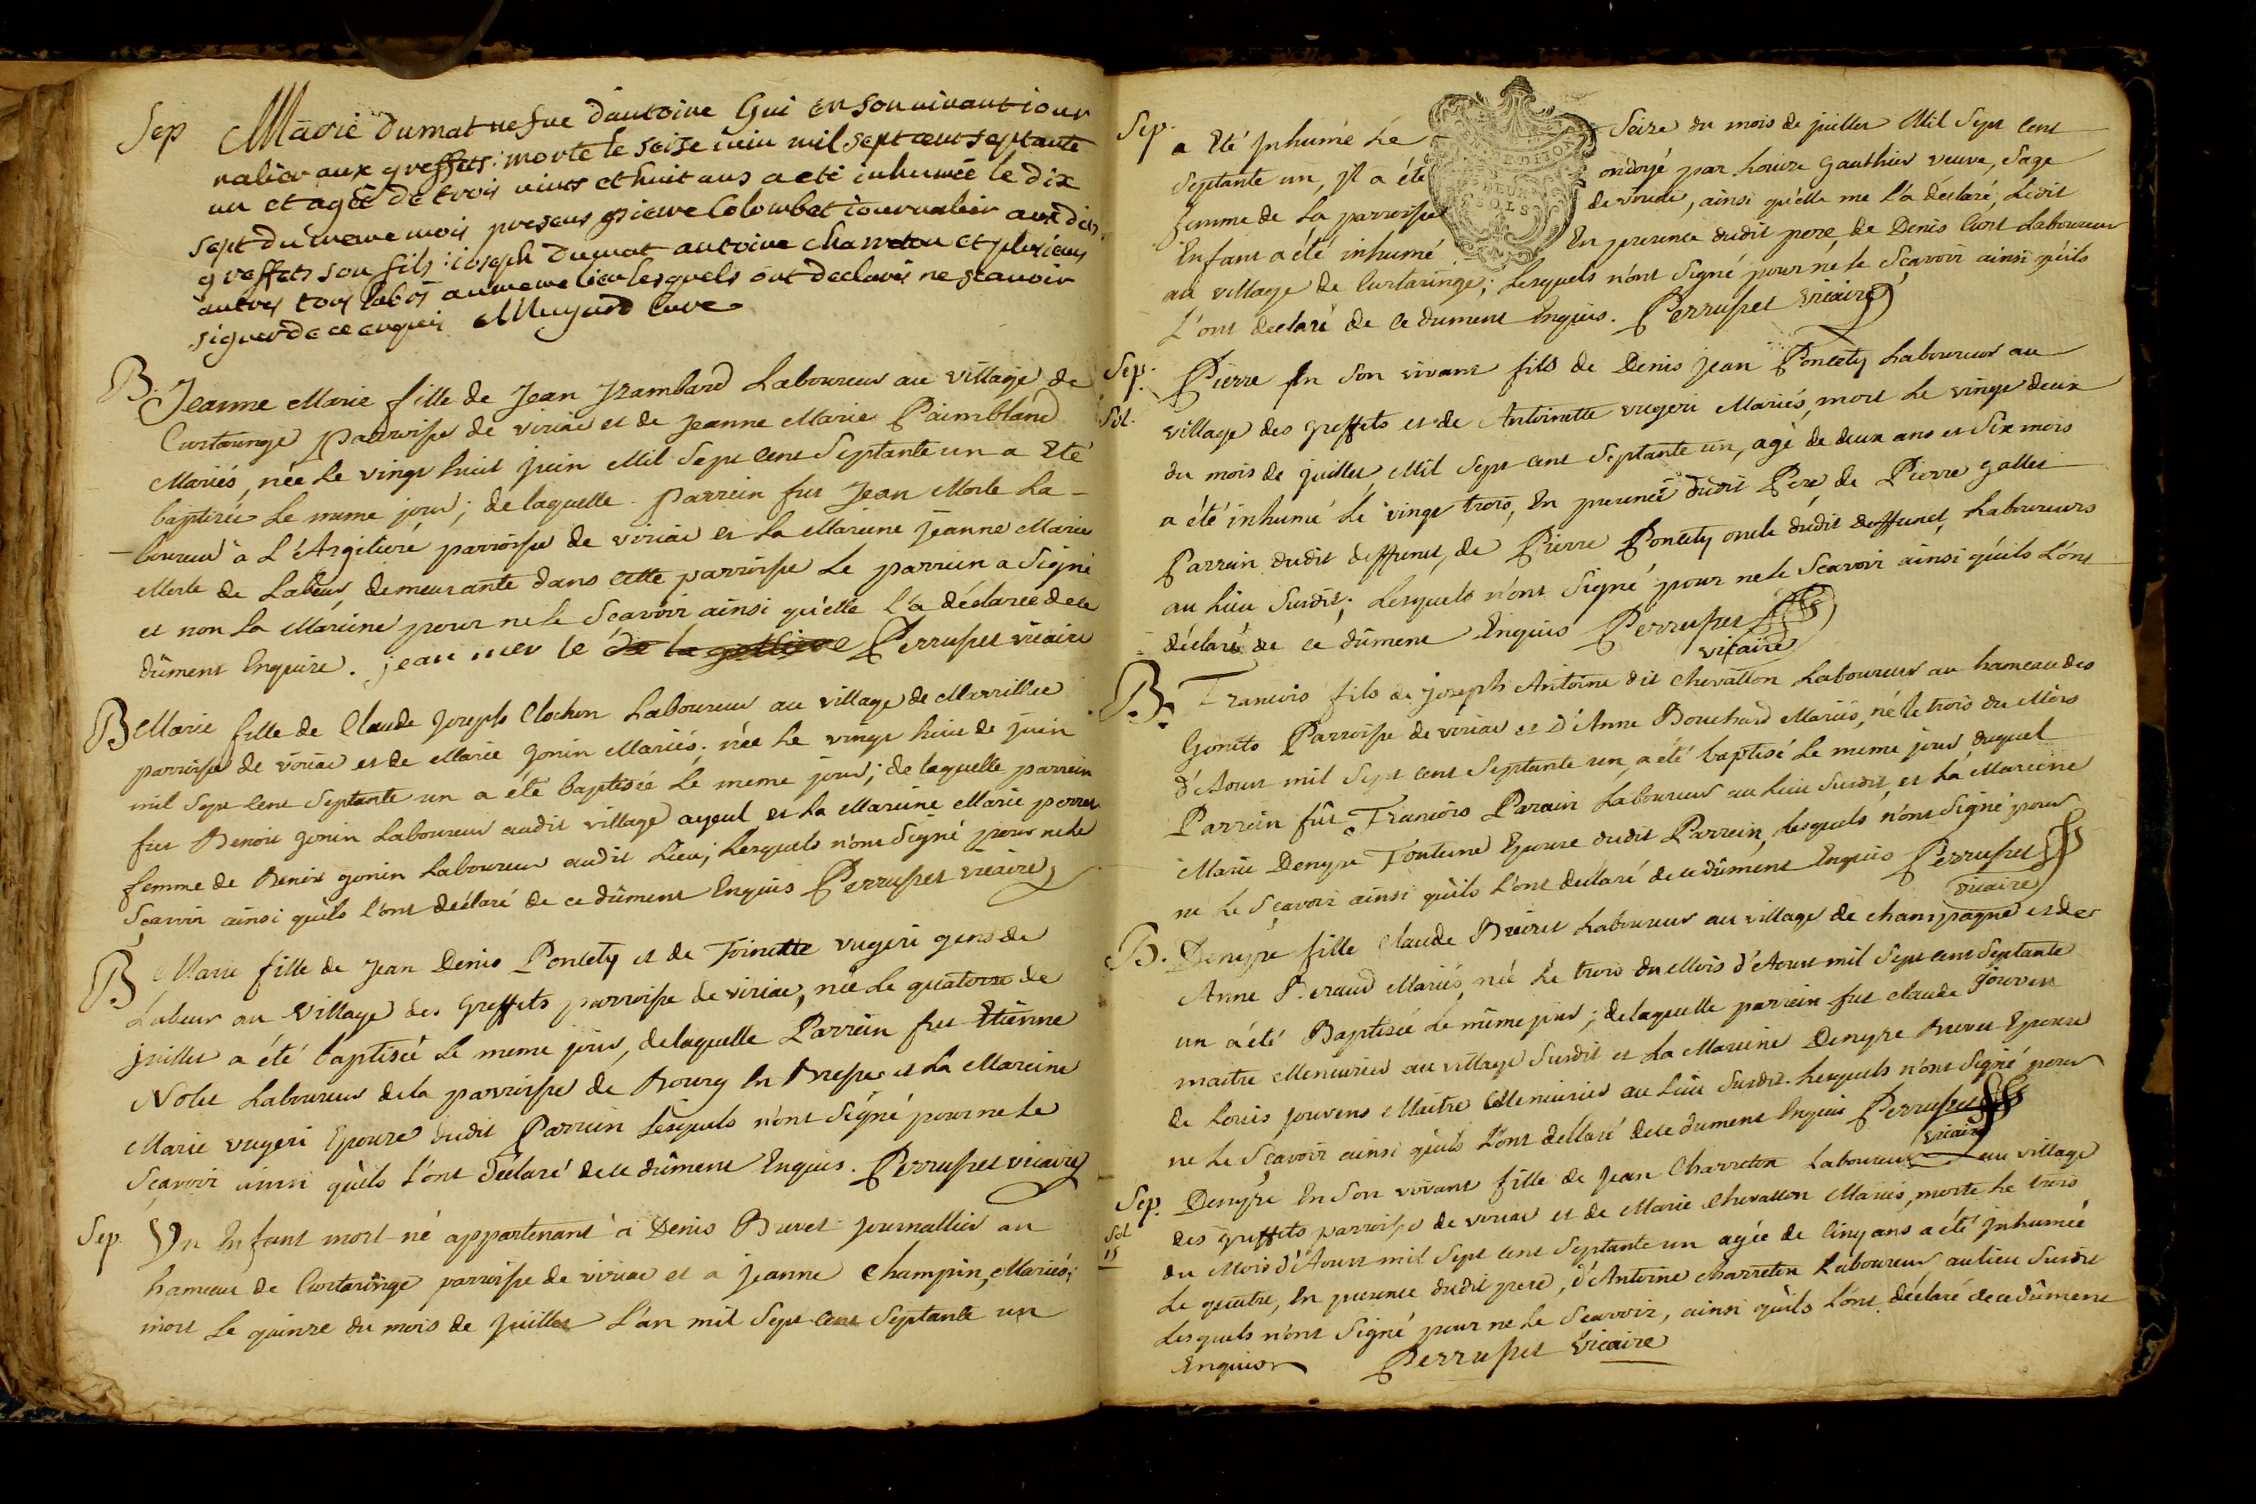 Sep
Marie dumat vefue dantoine Gui en son vivant iour
nalier aux greffets : morte le seise iuin mil sept cent septante
un et agée de trois vints et huit ans a eté inhumée le dix
sept du meme mois presens pierre Colombet iournalier aux dits
greffets son fils : ioseph dumat antoine charreton et plusieurs
autres tous labrs au meme lieu lesquels ont declaré ne scavoir
signer de ce enquis Muyard Curé
B. Jeanne Marie fille de Jean Jzambard Laboureur au village de
Curtaringe parroisse de viriac et de Jeanne Marie Paimbland
Mariés, née Le vingt huit juin Mil Sept Cent Septante un a Eté
baptisée Le meme jour ; de laquelle parrein fut Jean Merle La-
boureur a L'Argiliere parroisse de viriac et La Mareine Jeanne Marie
Merle de Labeur, demeurante dans cette parroisse Le parrein a Signé
et non La Mareine pour ne le Scavoir ainsi qu'elle L'a déclarée de ce
dûment Enquise. jean mer le de la Perrusset vicaire
B Marie fille de Claude Joseph Clochon Laboureur au village de Marrillee
parroisse de viriac et de Marie gonin Mariés ; née Le vingt huit de juin
mil Sept Cent Septante un a été baptisée Le meme jour ; de laquelle parrein
fut Benoit gonin Laboureur audit village ayeul et La Mareine Marie perret
femme de Benoit gonin Laboureur audit Lieu ; Lesquels n'ont Signé pour ne le
Sçavoir ainsi qu'ils L'ont déclaré de ce dûment Enquis Perrusset vicaire
B Marie fille de Jean Denis Poncety et de Toinette vugeri gens de
Labeur au village des Greffets parroisse de viriac, née Le quatorze de
juillet a été baptisée Le meme jour, de laquelle Parrein fut Etienne
Nolet Laboureur de la parroisse de Bourg En Bresse et La Mareine
Marie vugeri Epouse dudit Parrein Lesquels n'ont Signé pour ne le
Sçavoir ainsi qu'ils L'ont déclaré de ce dûment Enquis. Perrusset vicaire
Sep. Un Enfant mort né appartenant à Denis Buret journallier au
hameau de Curtaringe parroisse de viriac et a Jeanne Champin, Mariés ;
mort Le quinze du mois de juillet L'an mil Sept Cent Septante un
Sep. a Eté Jnhumé Le Seize du mois de juillet Mil Sept Cent
Septante un, il a été ondoyé par Louize Gauthier veuve, Sage
femme de La parroisse de viriac, ainsi qu'elle me L'a déclaré, Ledit
Enfant a été inhumé En presence dudit pere de Denis Curt Laboureur
au village de Curtaringe ; Lesquels n'ont Signé pour ne le Scavoir ainsi qu'ils
L'ont declaré de ce dument Enquis. Perrusset vicaire
Sep. Pierre En Son vivant fils de Denis Jean Poncety Laboureur au
Sol. village des Greffets et de Antoinette vugeri Mariés, mort Le vingt deux
du mois de juillet Mil Sept cent Septante un, agé de deux ans et Six mois
a été inhumé Le vingt trois, En presence dudit Pere, de Pierre gallet
Parrein dudit deffunct, de Pierre Poncety oncle dudit deffunct, Laboureurs
au Lieu Susdit ; Lesquels n'ont Signé pour ne le Scavoir ainsi qu'ils L'ont
déclaré de ce dûment Enquis Perrusset
vicaire
B. Francois fils de joseph Antoine dit Chevallon Laboureur au hameau des
Gonets Parroisse de viriac et d'Anne Bouchard Mariés, né le trois du Mois
d'Aout mil Sept cent Septante un, a été baptisé Le meme jour duquel
Parrein fût Francois Parain Laboureur au Lieu Susdit, et La Mareine
Marie Denyse Fontaine Epouse dudit Parrein, Lesquels n'ont Signé pour
ne Le Sçavoir ainsi qu'ils L'ont déclaré de ce dûment Enquis Perrusset
vicaire
B. Denyse fille Claude Brevet Laboureur au village de champagne et de
Anne Beraud Mariés, née Le trois du Mois d'Aout mil Sept cent Septante
un a été Baptisée Le même jour ; de laquelle parrein fut Claude Jouvens
maitre Menuisier au village Susdit et La Mareine Denyse Brevet Epouse
de Louis Jouvens Maître Menuisier au Lieu Susdit. Lesquels n'ont Signé pour
ne Le Sçavoir ainsi qu'ils L'ont déclaré de ce dument Enquis Perrusset
vicaire
Sep. Denyse En Son vivant fille de Jean Charreton Laboureur au village
Sol des Greffets parroisse de viriac et de Marie Chevallon Mariés, morte Le trois
15 du Mois d'Aout mil Sept cent Septante un agée de Cinq ans a été Jnhumée
Le quatre, En presence dudit pere, d'Antoine Charreton Laboureur au lieu Susdit
Lesquels n'ont Signé pour ne Le Scavoir, ainsi qu'ils L'ont déclaré de ce dûment
Enquis Perrusset vicaire